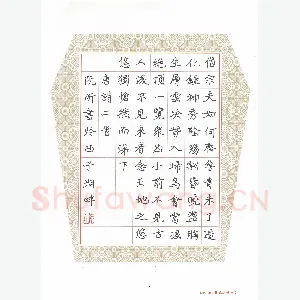 岱宗夫如何齊魯青未了造
化鍾神秀陰陽割昏曉盪胸
生層雲決眥入歸鳥會當凌
絕頂一覽衆山小前不見古
人後不見來者念天地之悠
悠獨愴然而涕下
唐詩二首
阮昕書於西子湖畔
Shufawu.CN